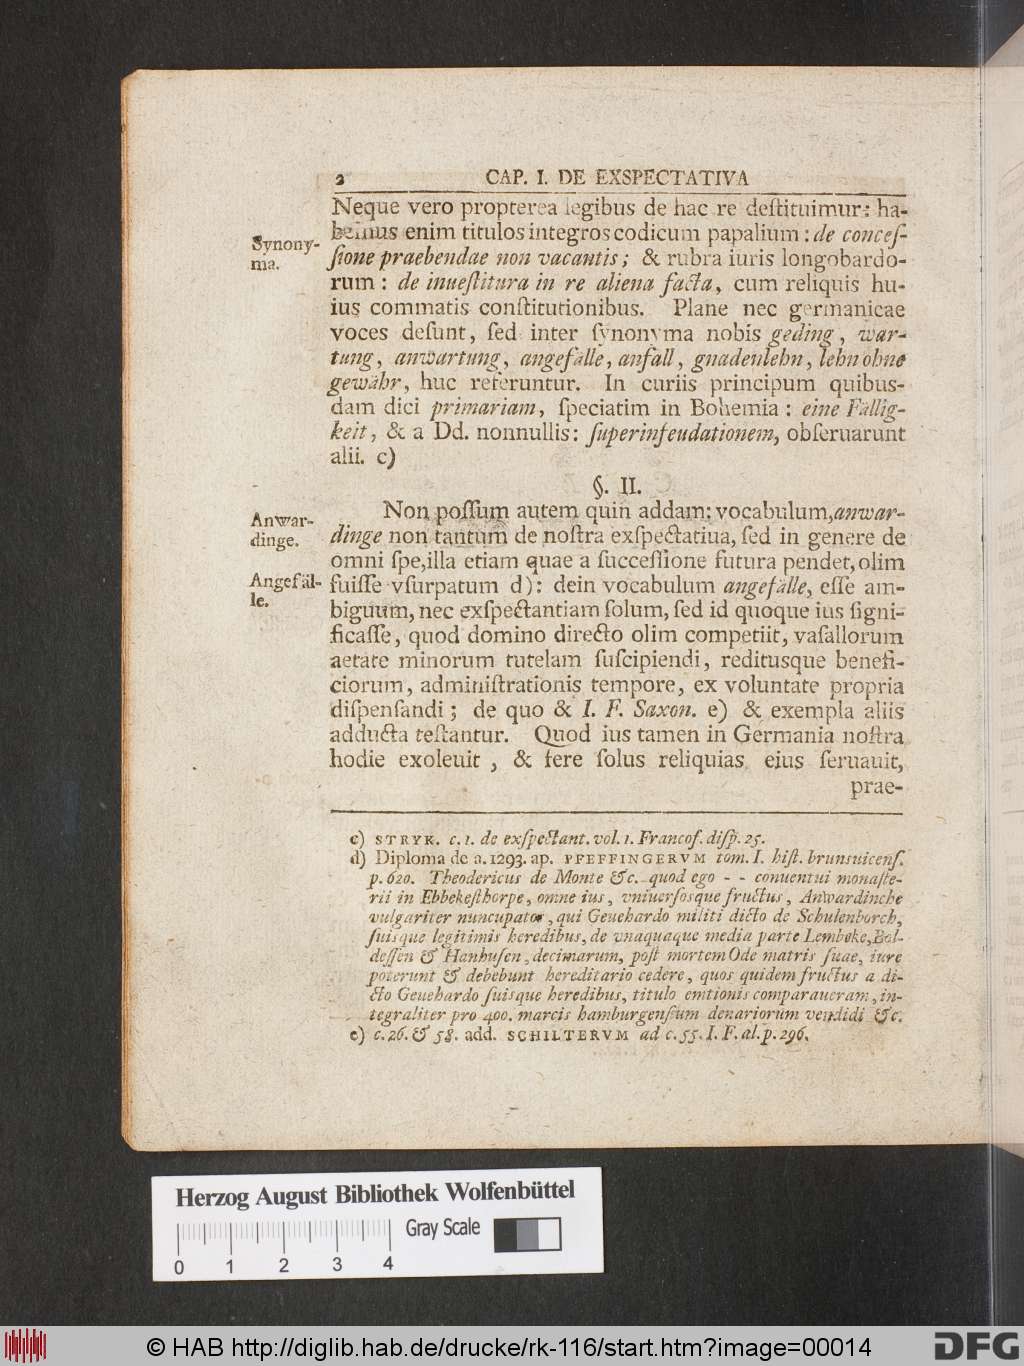 2 CAP. I. DE EXSPECTATIVA
Neque vero propterea legibus de hac re deſtituimur: ha-
bemus enim titulos integros codicum papalium: de conceſ-
Synony-
ma.
ſione praebendae non vacantis; & rubra iuris longobardo-
rum: de inueſtitura in re aliena facta, cum reliquis hu-
ius commatis conſtitutionibus. Plane nec germanicae
voces deſunt, ſed inter ſynonyma nobis geding, war-
tung, anwartung, angefälle, anfall, gnadenlehn, lehn ohne
gewähr, huc referuntur. In curiis principum quibus-
dam dici primariam, ſpeciatim in Bohemia: eine Fällig-
keit, & a Dd. nonnullis: ſuperinfeudationem, obſeruarunt
alii. c)
§. II.
Non poſſum autem quin addam: vocabulum, anwar-
Anwar-
dinge.
dinge non tantum de noſtra exſpectatiua, ſed in genere de
omni ſpe, illa etiam quae a ſucceſſione futura pendet, olim
Angefäl-
le.
fuiſſe vſurpatum d): dein vocabulum angefälle, eſſe am-
biguum, nec exſpectantiam ſolum, ſed id quoque ius ſigni-
ficaſſe, quod domino directo olim competiit, vaſallorum
aetate minorum tutelam ſuſcipiendi, reditusque benefi-
ciorum, adminiſtrationis tempore, ex voluntate propria
diſpenſandi; de quo & I. F. Saxon. e) & exempla aliis
adducta teſtantur. Quod ius tamen in Germania noſtra
hodie exoleuit, & fere ſolus reliquias eius ſeruauit,
prae-
c) STRYK. c. 1. de exſpectant. vol. 1. Francof. diſp. 25.
d) Diploma de a. 1293. ap. PFEFFINGERVM tom. I. hiſt. brunsuicenſ.
p. 620. Theodericus de Monte &c. quod ego - - conuentui monaſte-
rii in Ebbekeſthorpe, omne ius, vniuerſosque fructus, Anwardinche
vulgariter nuncupatos, qui Geuehardo militi dicto de Schulenborch,
ſuisque legitimis heredibus, de vnaquaque media parte Lembeke, Bol-
deſſen & Hanhuſen, decimarum, poſt mortem Ode matris ſuae, iure
poterunt & debebunt hereditario cedere, quos quidem fructus a di-
cto Geuehardo ſuisque heredibus, titulo emtionis comparaueram, in-
tegraliter pro 400. marcis hamburgenſium denariorum vendidi &c.
e) c. 26. & 58. add. SCHILTERVM ad c. 55. I. F. al. p. 296.
Herzog August Bibliothek Wolfenbüttel
Gray Scale
0 1 2 3 4
© HAB http://diglib.hab.de/drucke/rk-116/start.htm?image=00014
DFG